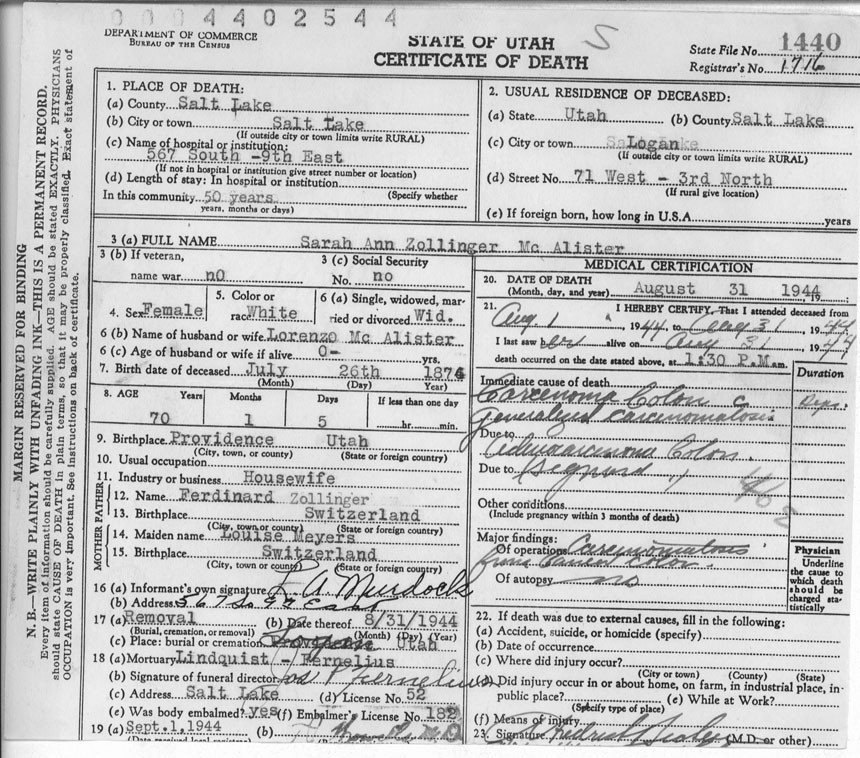 0004402544
DEPARTMENT OF COMMERCE
BUREAU OF THE CENSUS
STATE OF UTAH
CERTIFICATE OF DEATH
S
State File No. 1440
Registrar's No. 1716
MARGIN RESERVED FOR BINDING
N. B.—WRITE PLAINLY WITH UNFADING INK—THIS IS A PERMANENT RECORD.
Every item of information should be carefully supplied. AGE should be stated EXACTLY. PHYSICIANS
should state CAUSE OF DEATH in plain terms, so that it may be properly classified. Exact statement of
OCCUPATION is very important. See instructions on back of certificate.
1. PLACE OF DEATH:
(a) County Salt Lake
(b) City or town Salt Lake
(If outside city or town limits write RURAL)
(c) Name of hospital or institution:
567 South -9th East
(If not in hospital or institution give street number or location)
(d) Length of stay: In hospital or institution
(Specify whether
In this community 50 years
years, months or days)
2. USUAL RESIDENCE OF DECEASED:
(a) State Utah (b) County Salt Lake
(c) City or town Logan
(If outside city or town limits write RURAL)
(d) Street No. 71 West - 3rd North
(If rural give location)
(e) If foreign born, how long in U.S.A. years
3 (a) FULL NAME Sarah Ann Zollinger Mc Alister
3 (b) If veteran,
name war no
3 (c) Social Security
No. no
4. Sex Female
5. Color or
race White
6 (a) Single, widowed, mar-
ried or divorced Wid.
6 (b) Name of husband or wife Lorenzo Mc Alister
6 (c) Age of husband or wife if alive 0- yrs.
7. Birth date of deceased July 26th 1874
(Month) (Day) Year)
8. AGE Years Months Days If less than one day
70 1 5 hr. min.
9. Birthplace Providence Utah
(City, town, or county) (State or foreign country)
10. Usual occupation
11. Industry or business Housewife
FATHER
12. Name Ferdinard Zollinger
13. Birthplace Switzerland
(City, town or county) (State or foreign country)
MOTHER
14. Maiden name Louise Meyers
15. Birthplace Switzerland
(City, town or county) (State or foreign country)
16 (a) Informant's own signature R. A. Murdock
(b) Address 567 So 9th East
17 (a) Removal (b) Date thereof 8/31/1944
(Burial, cremation, or removal) (Month) (Day) (Year)
(c) Place: burial or cremation Utah
18 (a) Mortuary Lindquist - Fernelius
(b) Signature of funeral director Fernelius
(c) Address Salt Lake (d) License No. 52
(e) Was body embalmed? yes (f) Embalmer's License No. 182
19 (a) Sept.1,1944 (b) M.D.
(Date received local registrar)
MEDICAL CERTIFICATION
20. DATE OF DEATH
(Month, day, and year) August 31 1944 19
21. I HEREBY CERTIFY, That I attended deceased from
Aug. 1, 1944 to Aug 31, 1944
I last saw her alive on Aug 31, 1944
death occurred on the date stated above, at 1:30 P.M.m.
Duration
Immediate cause of death
Carcenoma Colon c
generalized carcenomatosis
Due to
adenocarcinoma Colon.
Due to Sigmoid "
Other conditions
(Include pregnancy within 3 months of death)
Major findings:
Of operation Carcenomatosis
from Colon.
Of autopsy no
Physician
Underline
the cause to
which death
should be
charged sta-
tistically
22. If death was due to external causes, fill in the following:
(a) Accident, suicide, or homicide (specify)
(b) Date of occurrence
(c) Where did injury occur?
(City or town) (County) (State)
(d) Did injury occur in or about home, on farm, in industrial place, in-
public place? (e) While at Work?
(Specify type of place)
(f) Means of injury
23. Signature (M.D. or other)